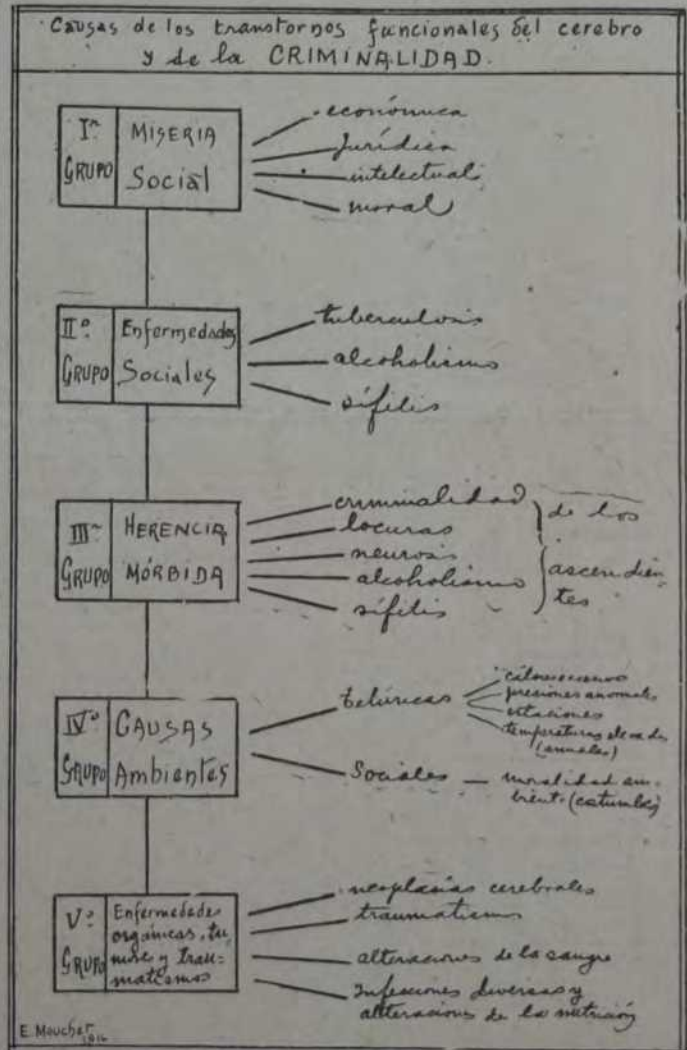 Causas de los transtornos funcionales del cerebro
y de la CRIMINALIDAD.
Iº GRUPO
MISERIA
Social
económica
Jurídica
intelectual
moral
IIº GRUPO
Enfermedades
Sociales
tuberculosis
alcoholismo
sífilis
IIIº GRUPO
HERENCIA
MÓRBIDA
criminalidad
locuras
neurosis
alcoholismo
sífilis
de los
ascendien-
tes
IVº GRUPO
CAUSAS
Ambientes
telúricas
presiones anomales
estaciones
temperaturas elevadas
(anuales)
Sociales — moralidad am-
bient. (costumbres)
Vº GRUPO
Enfermedades
orgánicas, tu
mores y trau=
matismos
neoplasias cerebrales
traumatismos
alteraciones de la sangre
Infecciones diversas y
alteraciones de la nutrición
E. Mouchet